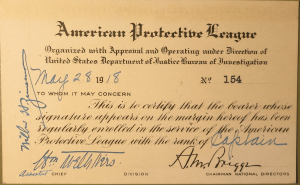 American Protective League
Organized with Approval and Operating under Direction of
United States Department of Justice Bureau of Investigation
May 28 1918 Nº 154
TO WHOM IT MAY CONCERN
This is to certify that the bearer whose
signature appears on the margin hereof has been
regularly enrolled in the service of the American
Protective League with the rank of Captain
CHIEF DIVISION CHAIRMAN NATIONAL DIRECTORS